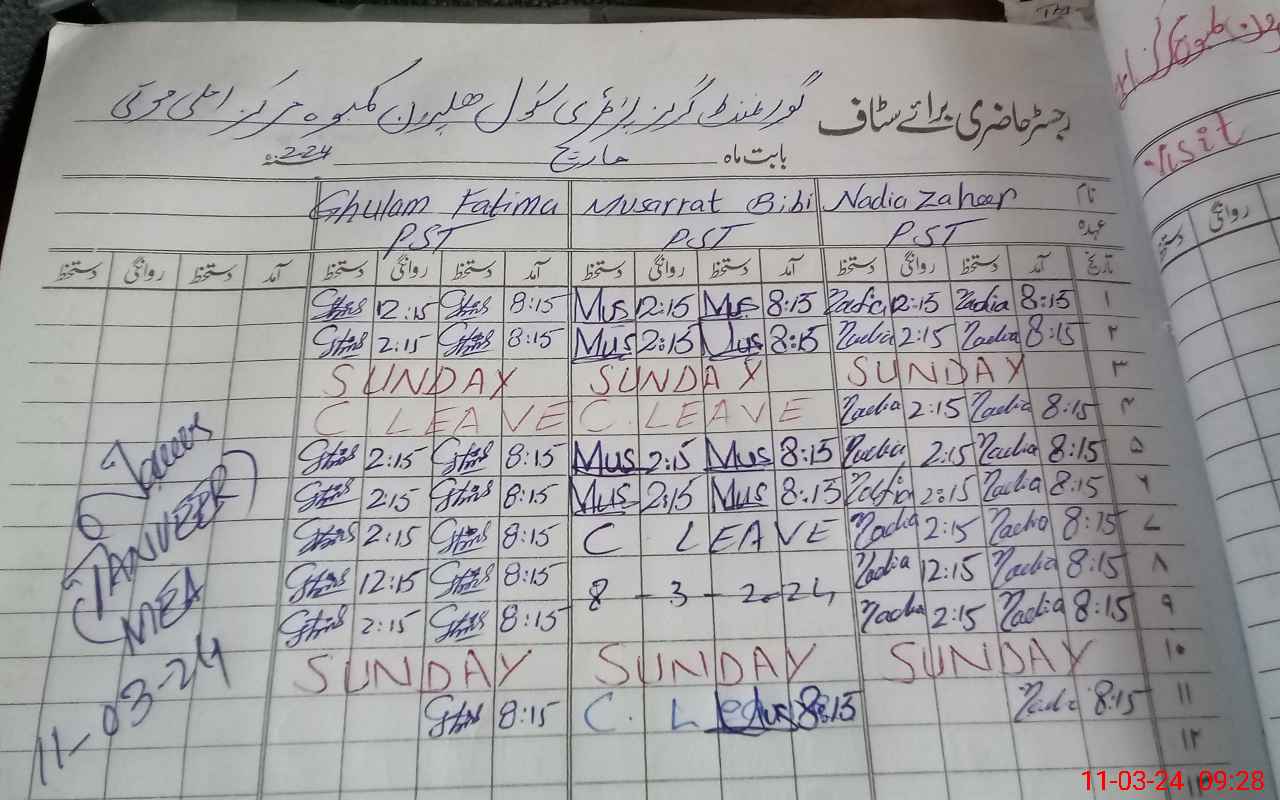 رجسٹر حاضری برائے سٹاف گورنمنٹ گرلز پرائمری سکول
بابت ماہ مارچ
visit
نام Nadia Zaheer Musarrat Bibi Ghulam Fatima
عہدہ PST PST PST
تاریخ آمد دستخط روانگی دستخط آمد دستخط روانگی دستخط آمد دستخط روانگی دستخط آمد دستخط روانگی دستخط
روانگی دستخط
۱ 8:15 Nadia 12:15 Nadia 8:15 Mus 12:15 Mus 8:15 12:15
۲ 8:15 Nadia 2:15 Nadia 8:15 Mus 2:15 Mus 8:15 2:15
۳ SUNDAY SUNDAY SUNDAY
۴ 8:15 Nadia 2:15 Nadia C. LEAVE C LEAVE
۵ 8:15 Nadia 2:15 Nadia 8:15 Mus 2:15 Mus 8:15 2:15
۶ 8:15 Nadia 2:15 Nadia 8:15 Mus 2:15 Mus 8:15 2:15
۷ 8:15 Nadia 2:15 Nadia C LEAVE 8:15 2:15
۸ 8:15 Nadia 12:15 Nadia 8-3-2024 8:15 12:15
۹ 8:15 Nadia 2:15 Nadia 8:15 2:15
۱۰ SUNDAY SUNDAY SUNDAY
۱۱ 8:15 Nadia 8:15 Mus C. Le 8:15
۱۲
(TANVEER)
MEA
11-03-24
11-03-24 09:28